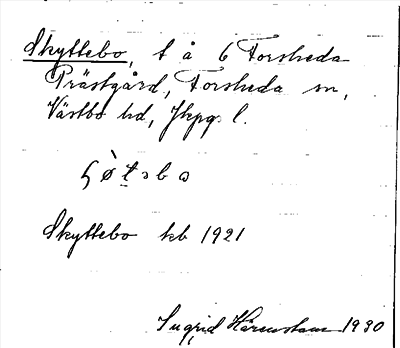 Skyttebo, t å 6 Forsheda
Prästgård, Forsheda sn,
Västbo hd, Jkpgs l.
Skyttebo kb 1921
Ingrid Härenstam 1930